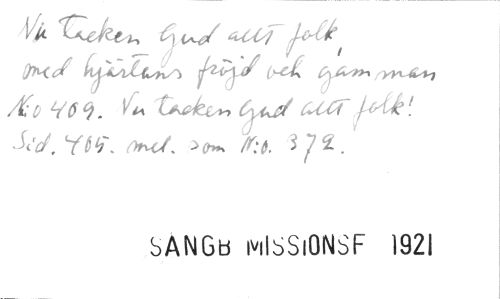 Nu tacken Gud allt folk,
med hjärtans fröjd och gamman
N:o 409. Nu tacken Gud allt folk!
Sid. 405. mel. som N:o. 372.
SÅNGB MISSIONSF 1921